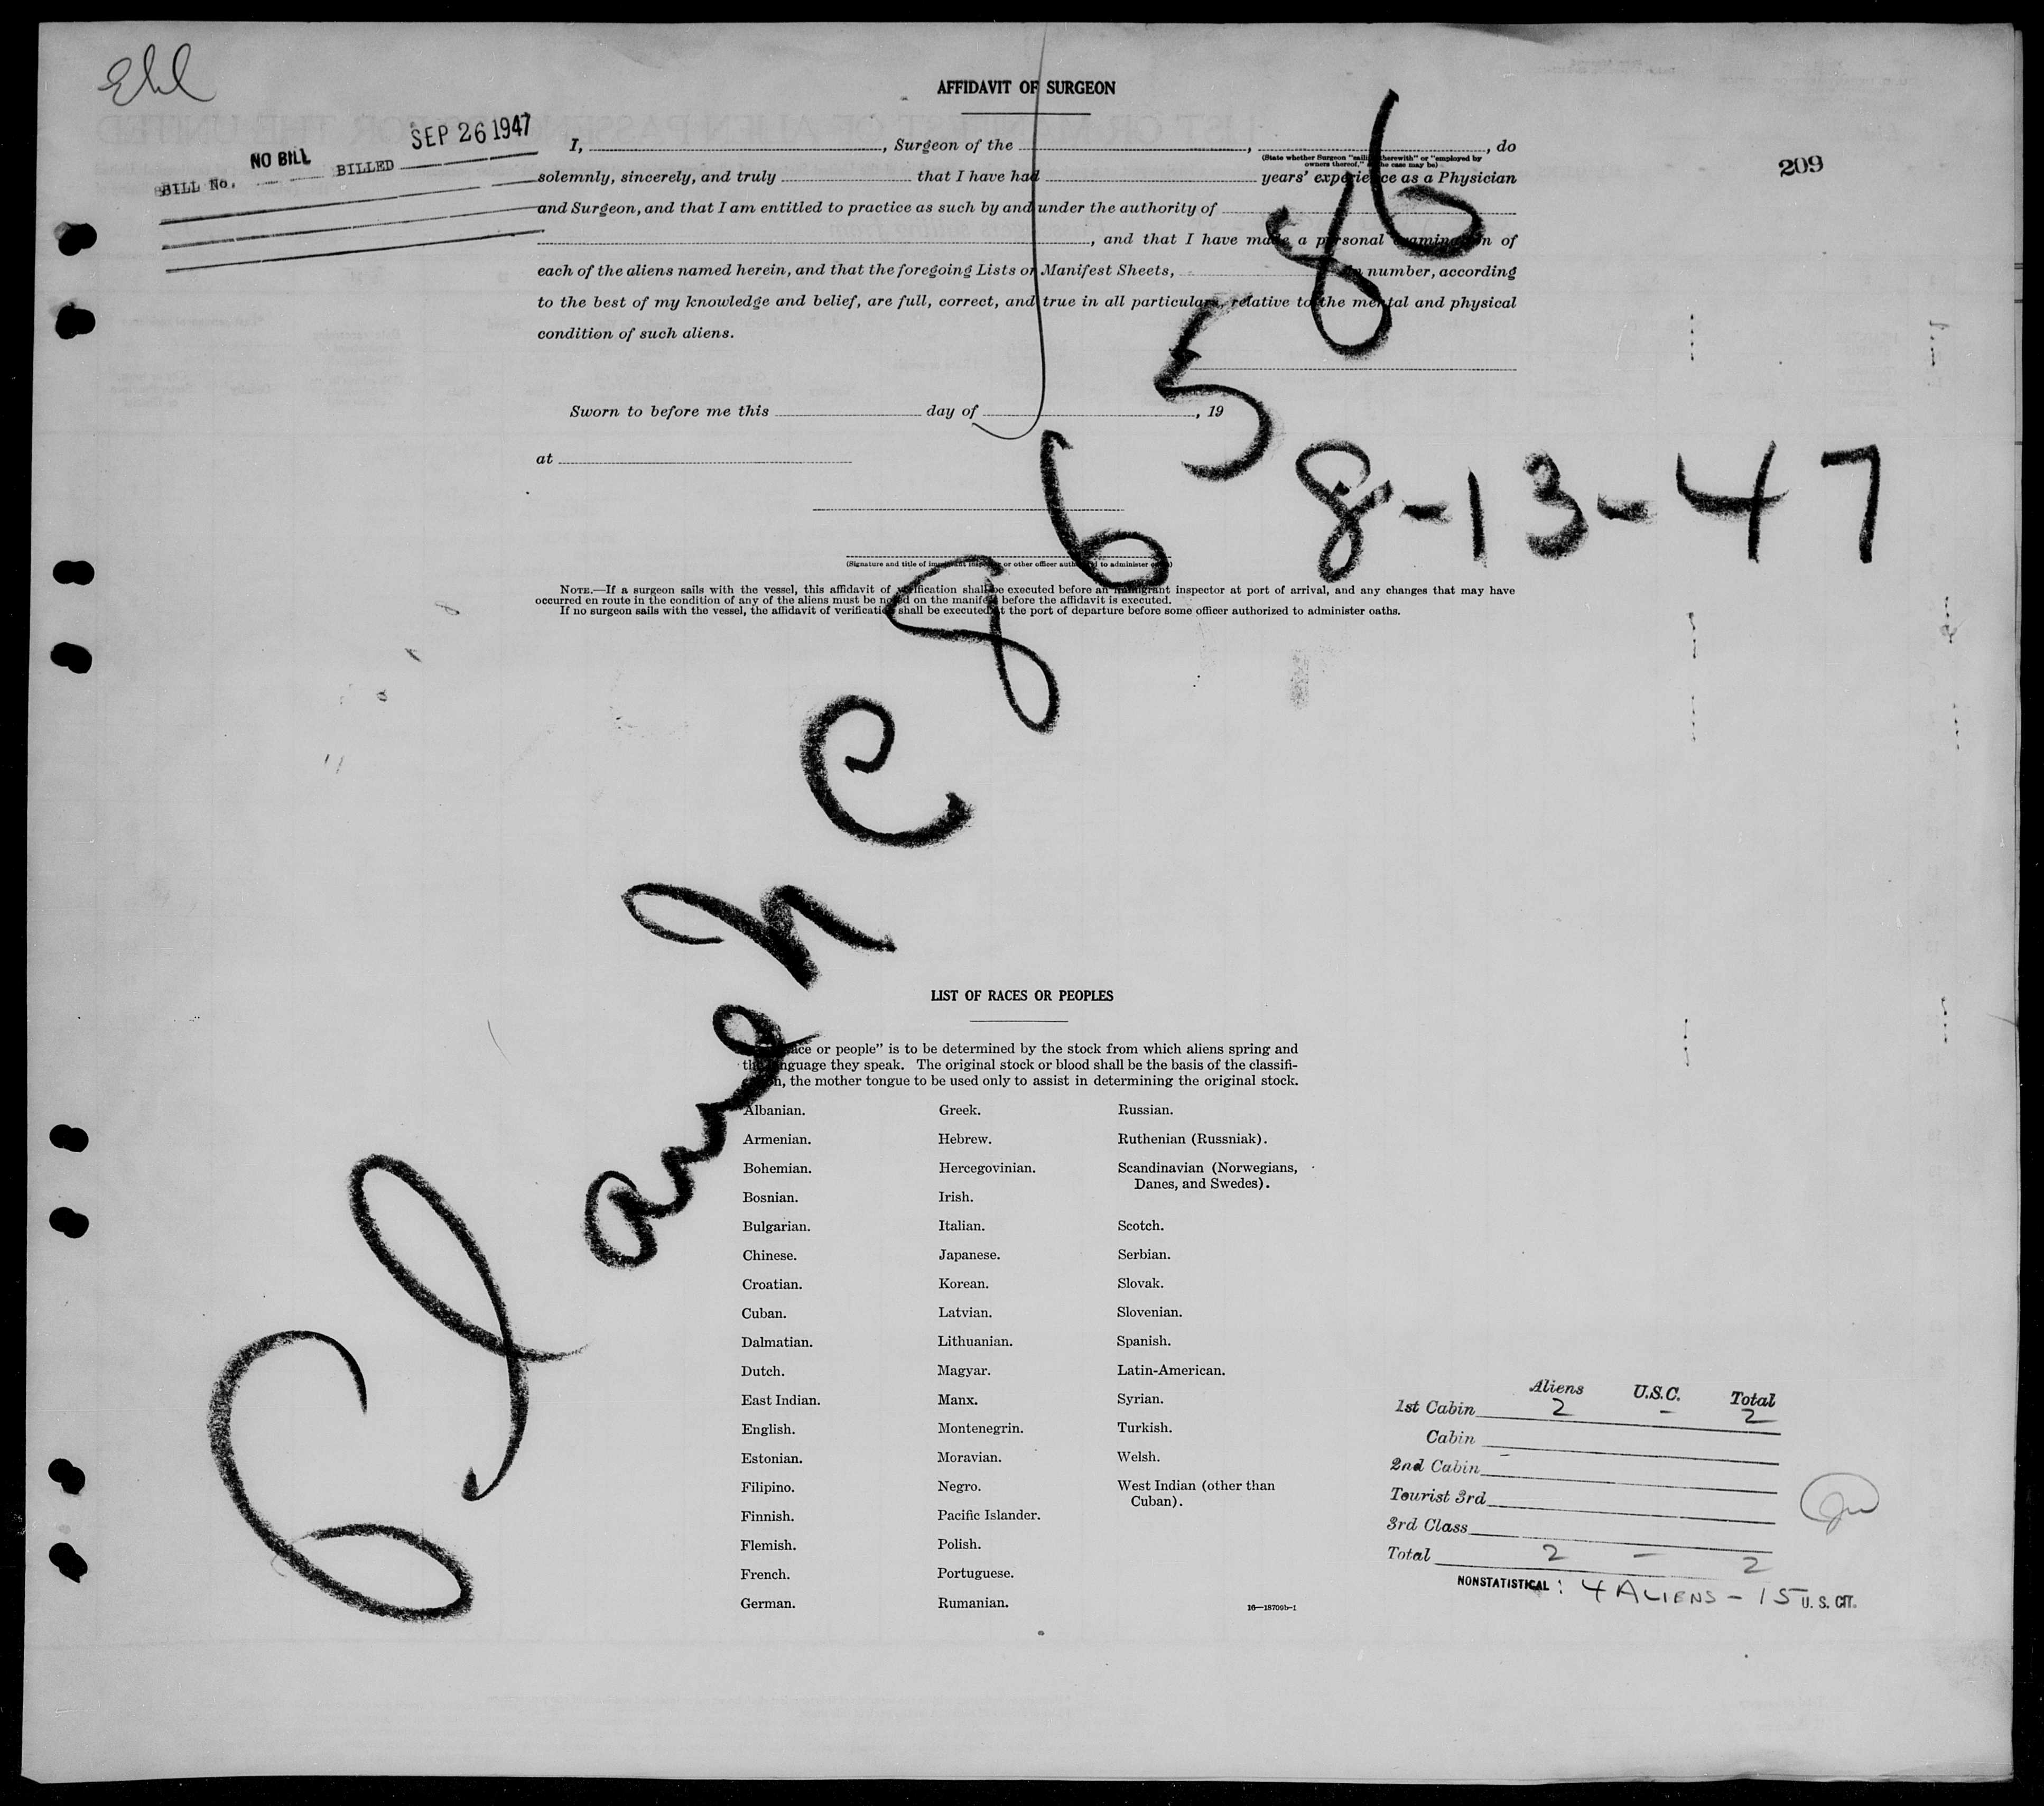 Ehl
SEP 26 1947
NO BILL
BILL No. BILLED
209
AFFIDAVIT OF SURGEON
I, , Surgeon of the , , do
(State whether Surgeon "sailing therewith" or "employed by owners thereof," as the case may be)
solemnly, sincerely, and truly that I have had years' experience as a Physician
and Surgeon, and that I am entitled to practice as such by and under the authority of
, and that I have made a personal examination of
each of the aliens named herein, and that the foregoing Lists or Manifest Sheets, in number, according
to the best of my knowledge and belief, are full, correct, and true in all particulars, relative to the mental and physical
condition of such aliens.
Sworn to before me this day of , 19
at
(Signature and title of immigrant inspector or other officer authorized to administer oaths)
NOTE.—If a surgeon sails with the vessel, this affidavit of verification shall be executed before an immigrant inspector at port of arrival, and any changes that may have
occurred en route in the condition of any of the aliens must be noted on the manifest before the affidavit is executed.
If no surgeon sails with the vessel, the affidavit of verification shall be executed at the port of departure before some officer authorized to administer oaths.
NC 86586
8-13-47
LIST OF RACES OR PEOPLES
"Race or people" is to be determined by the stock from which aliens spring and
the language they speak. The original stock or blood shall be the basis of the classifi-
cation, the mother tongue to be used only to assist in determining the original stock.
Albanian. Greek. Russian.
Armenian. Hebrew. Ruthenian (Russniak).
Bohemian. Hercegovinian. Scandinavian (Norwegians,
Danes, and Swedes).
Bosnian. Irish.
Bulgarian. Italian. Scotch.
Chinese. Japanese. Serbian.
Croatian. Korean. Slovak.
Cuban. Latvian. Slovenian.
Dalmatian. Lithuanian. Spanish.
Dutch. Magyar. Latin-American.
East Indian. Manx. Syrian.
English. Montenegrin. Turkish.
Estonian. Moravian. Welsh.
Filipino. Negro. West Indian (other than
Cuban).
Finnish. Pacific Islander.
Flemish. Polish.
French. Portuguese.
German. Rumanian.
16—18709b-1
Aliens U.S.C. Total
1st Cabin 2 – 2
Cabin
2nd Cabin
Tourist 3rd
3rd Class
Total 2 – 2
NONSTATISTICAL: 4 ALIENS – 15 U. S. CIT.